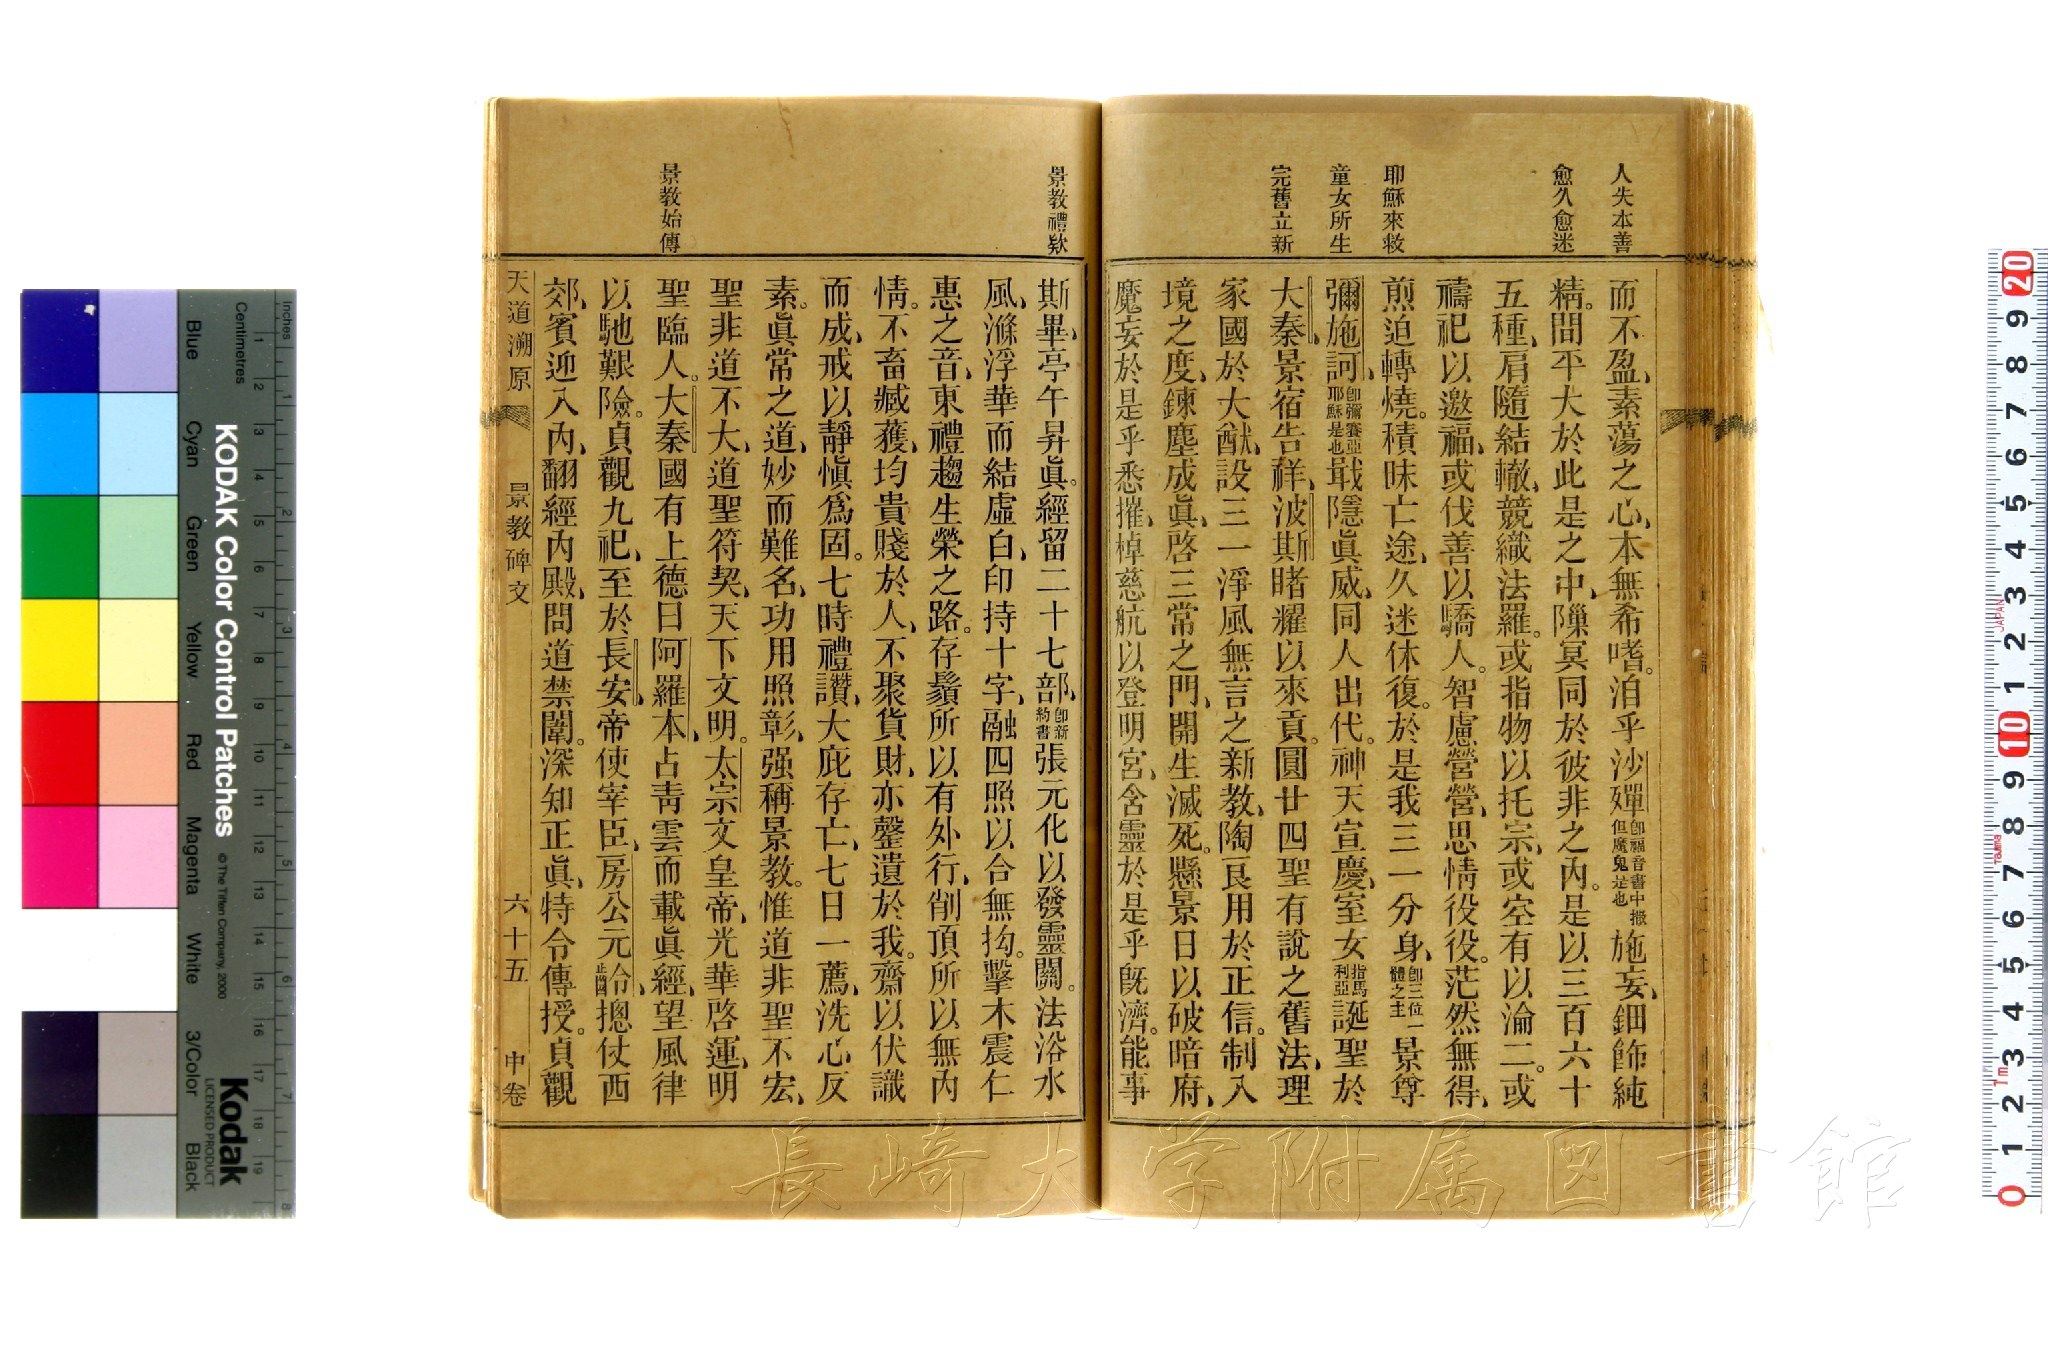 人失本善
愈久愈迷
耶穌來救
童女所生
完舊立新
而不盈、素蕩之心、本無希嗜。洎乎沙殫卽福音書中撒但魔鬼是也施妄、鈿飾純
精。間平大於此是之中、隟冥同於彼非之內。是以三百六十
五種、肩隨結轍、競織法羅。或指物以托宗、或空有以淪二。或
禱祀以邀福、或伐善以驕人。智慮營營、思情役役。茫然無得、
煎迫轉燒。積昧亡途、久迷休復。於是我三一分身、卽三位一體之主景尊
彌施訶、卽彌賽亞耶穌是也戢隱眞威、同人出代。神天宣慶、室女指馬利亞誕聖於
大秦、景宿告祥、波斯睹耀以來貢。圓廿四聖有說之舊法、理
家國於大猷、設三一淨風無言之新教、陶良用於正信。制入
境之度、鍊塵成眞、啓三常之門、開生滅死。懸景日以破暗府、
魔妄於是乎悉摧、棹慈航以登明宮、含靈於是乎旣濟。能事
景教禮欵
景教始傳
斯畢、亭午昇眞。經留二十七部、卽新約書張元化以發靈關。法浴水
風、滌浮華而結虛白、印持十字、融四照以合無拘。擊木震仁
惠之音、東禮趨生榮之路。存鬚所以有外行、削頂所以無內
情。不畜臧獲、均貴賤於人、不聚貨財、亦罄遺於我。齋以伏識
而成、戒以靜愼爲固。七時禮讚、大庇存亡、七日一薦、洗心反
素。眞常之道、妙而難名、功用照彰、强稱景教。惟道非聖不宏、
聖非道不大、道聖符契、天下文明。太宗文皇帝、光華啓運、明
聖臨人。大秦國有上德曰阿羅本、占青雲而載眞經、望風律
以馳艱險。貞觀九祀、至於長安、帝使宰臣、房公元㕣、摠仗西
郊、賓迎入內、翻經內殿、問道禁闈。深知正眞、特令傳授。貞觀
天道溯原
景教碑文
六十五
中卷
長崎大学附属図書館
KODAK Color Control Patches
© The Tiffen Company, 2000
Kodak
LICENSED PRODUCT
Inches
Centimetres
Blue
Cyan
Green
Yellow
Red
Magenta
White
3/Color
Black
JAPAN